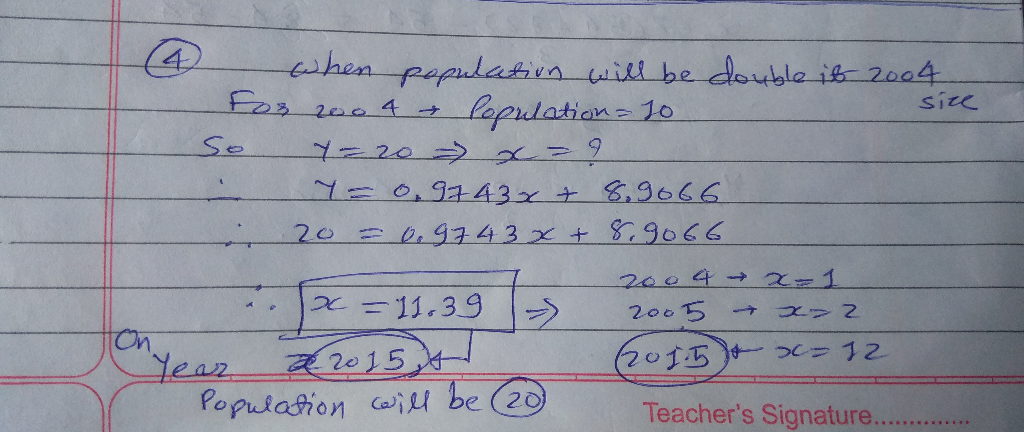 ④ When population will be double its 2004 size
For 2004 → Population = 10
So Y = 20 ⇒ x = ?
∴ Y = 0.9743x + 8.9066
∴ 20 = 0.9743x + 8.9066
∴ x = 11.39 ⇒
2004 → x = 1
2005 → x = 2
2015 ← x = 12
On Year 2015
Population will be 20
Teacher's Signature...............